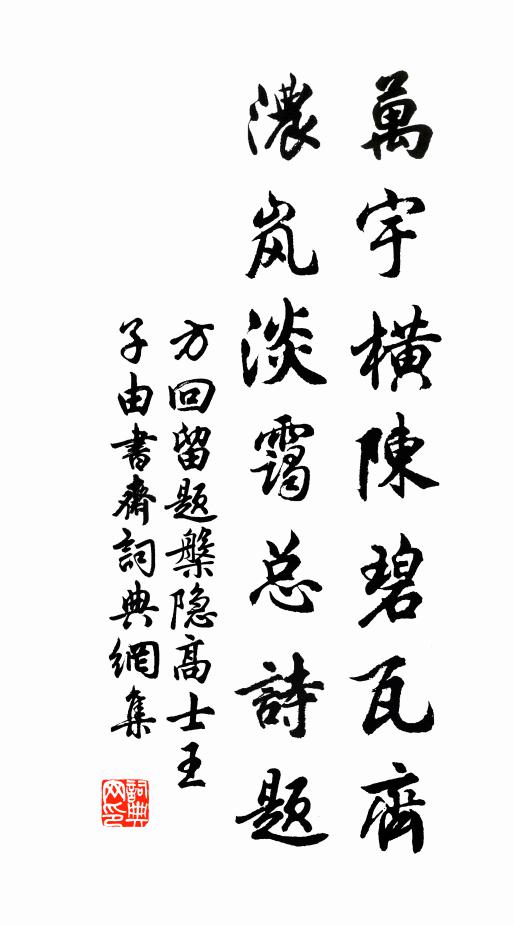 萬宇橫陳碧瓦齊
濃岚淡靄总詩题
方回留题槃隐高士王
子由書齋詞典網集
詞典网印